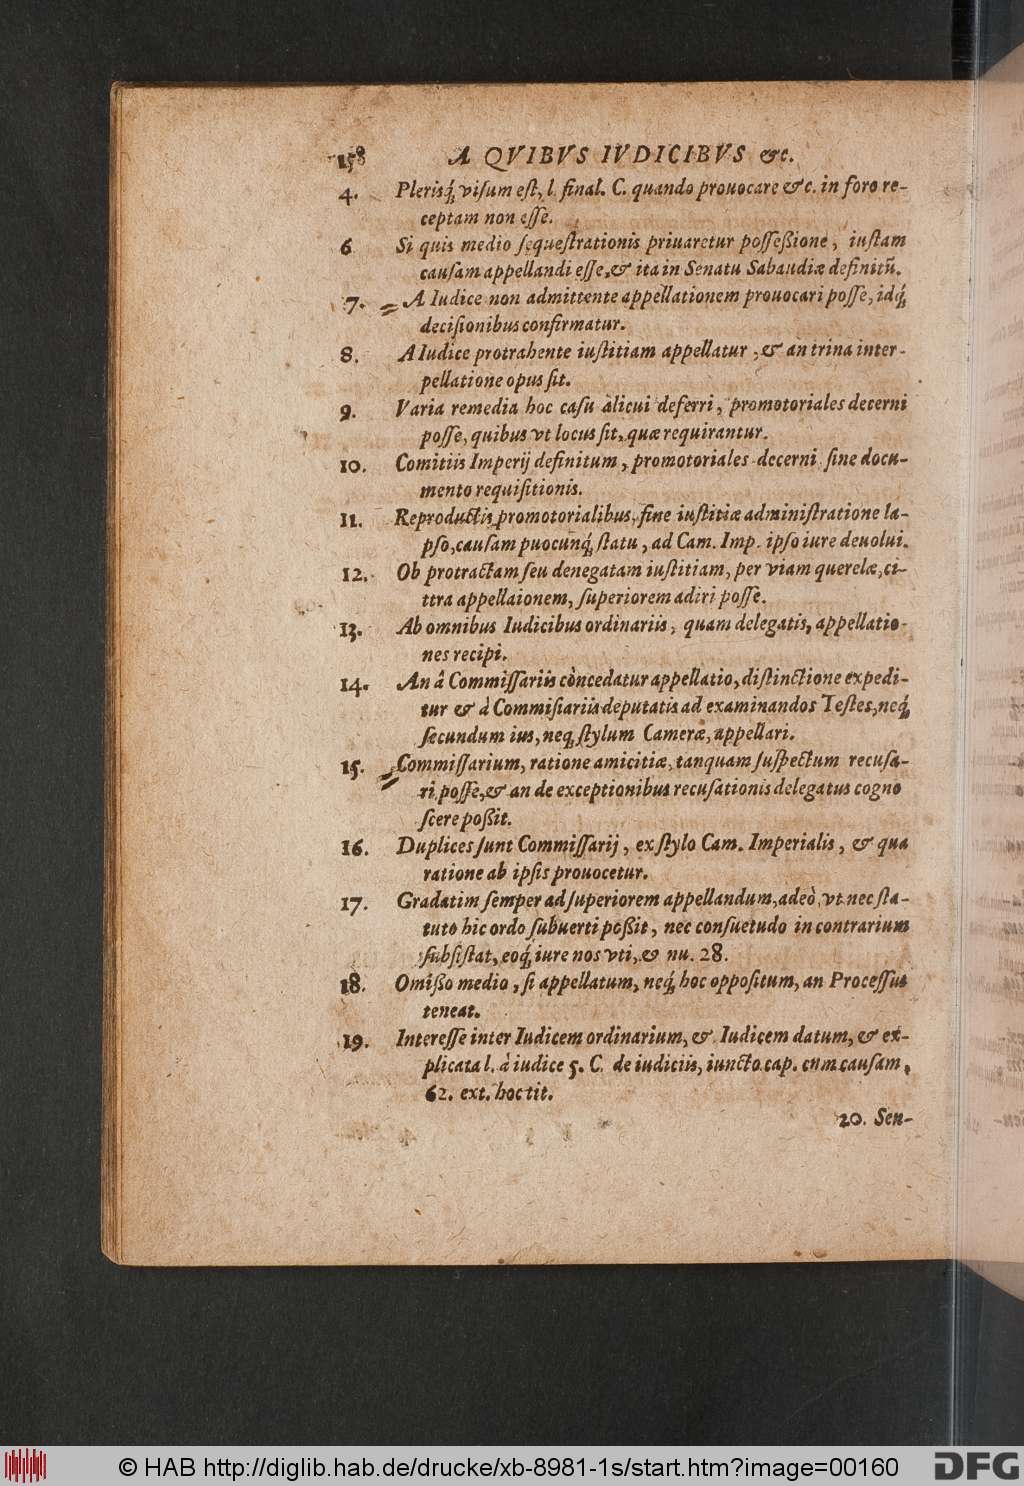 158 A QVIBVS IVDICIBVS &c.
4. Plerisq́; viſum eſt, l. final. C. quando prouocare &c. in foro re-
ceptam non eſſe.
6 Si quis medio ſequeſtrationis priuaretur poſſeßione, iuſtam
cauſam appellandi eſſe, & ita in Senatu Sabaudiæ definitũ.
7. A Iudice non admittente appellationem prouocari poſſe, idq́;
deciſionibus confirmatur.
8. A Iudice protrahente iuſtitiam appellatur, & an trina inter-
pellatione opus ſit.
9. Varia remedia hoc caſu alicui deferri, promotoriales decerni
poſſe, quibus vt locus ſit, quæ requirantur.
10. Comitiis Imperij definitum, promotoriales decerni ſine docu-
mento requiſitionis.
11. Reproductis promotorialibus, ſine iuſtitiæ adminiſtratione la-
pſo, cauſam puocunq́; ſtatu, ad Cam. Imp. ipſo iure deuolui.
12. Ob protractam ſeu denegatam iuſtitiam, per viam querelæ, ci-
tra appellaionem, ſuperiorem adiri poſſe.
13. Ab omnibus Iudicibus ordinariis, quam delegatis, appellatio-
nes recipi.
14. An â Commiſſariis còncedatur appellatio, diſtinctione expedi-
tur & à Commiſiariis deputatis ad examinandos Teſtes, neq́;
ſecundum ius, neq; ſtylum Cameræ, appellari.
15. Commiſſarium, ratione amicitiæ, tanquam ſuſpectum recuſa-
ri poſſe, & an de exceptionibus recuſationis delegatus cogno
ſcere poßit.
16. Duplices ſunt Commiſſarij, ex ſtylo Cam. Imperialis, & qua
ratione ab ipſis prouocetur.
17. Gradatim ſemper ad ſuperiorem appellandum, adeò, vt nec ſta-
tuto hic ordo ſubuerti poßit, nec conſuetudo in contrarium
ſubſiſtat, eoq́; iure nos vti, & nu. 28.
18. Omißo medio, ſi appellatum, neq́; hoc oppoſitum, an Proceſſus
teneat.
19. Intereſſe inter Iudicem ordinarium, & Iudicem datum, & ex-
plicata l. à iudice 5. C. de iudiciis, iuncto cap. cum cauſam,
62. ext. hoc tit.
20. Sen-
© HAB http://diglib.hab.de/drucke/xb-8981-1s/start.htm?image=00160
DFG